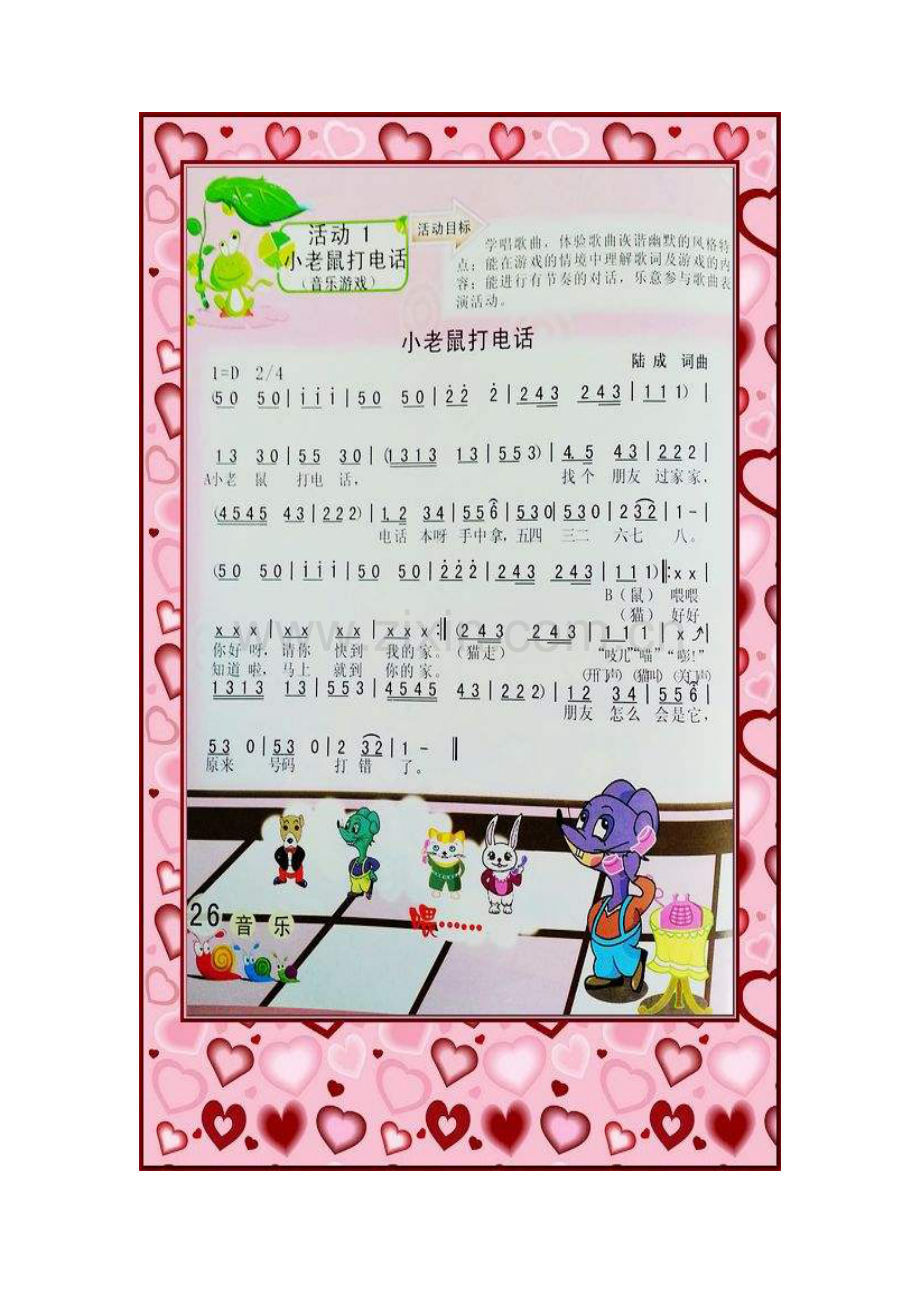 活动 1
小老鼠打电话
（音乐游戏）
活动目标
学唱歌曲，体验歌曲诙谐幽默的风格特
点；能在游戏的情境中理解歌词及游戏的内
容；能进行有节奏的对话，乐意参与歌曲表
演活动。
小老鼠打电话
陆 成 词曲
1=D 2/4
(50 50|i i i|50 50|2̇2̇ 2̇|243 243|111)|
13 30|55 30|(1313 13|553)|4.5 43|222|
A小老 鼠 打电 话， 找个 朋友 过家家，
(4545 43|222)|1.2 34|556|530|530|232|1-|
电话 本呀 手中拿，五四 三二 六七 八。
(50 50|i i i|50 50|2̇2̇2̇|243 243|111)‖:x x|
B（鼠）喂喂
（猫）好好
x x x x x x|x x x:‖(243 243|111|x↗|
你好 呀，请你 快到 我的家。（猫走） “吱儿”“喵”“嘭！”
知道 啦，马上 就到 你的家。 （开门声）（猫叫）（关门声）
1313 13|553|4545 43|222)|12 34|556|
朋友 怎么 会是它，
53 0|53 0|2 32|1 -‖
原来 号码 打 错 了。
喂……
26 音 乐
www.zixin.com.cn